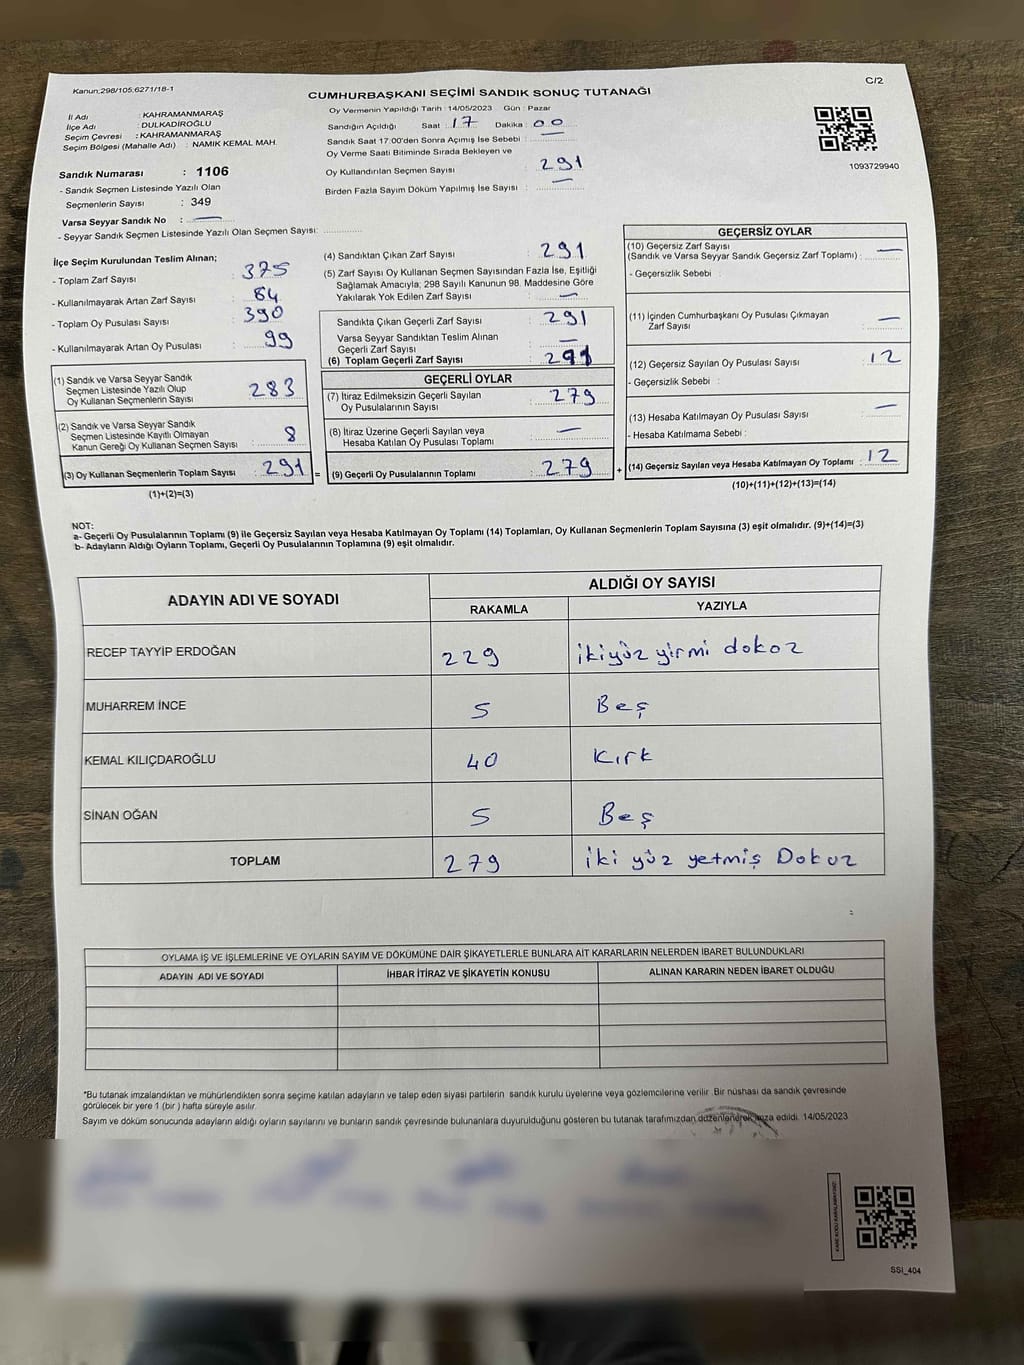 Kanun;298/105;6271/18-1
C/2
CUMHURBAŞKANI SEÇİMİ SANDIK SONUÇ TUTANAĞI
İl Adı : KAHRAMANMARAŞ
İlçe Adı : DULKADİROĞLU
Seçim Çevresi : KAHRAMANMARAŞ
Seçim Bölgesi (Mahalle Adı) : NAMIK KEMAL MAH.
Sandık Numarası : 1106
- Sandık Seçmen Listesinde Yazılı Olan
Seçmenlerin Sayısı : 349
Varsa Seyyar Sandık No : —
- Seyyar Sandık Seçmen Listesinde Yazılı Olan Seçmen Sayısı:
Oy Vermenin Yapıldığı Tarih : 14/05/2023 Gün : Pazar
Sandığın Açıldığı Saat : 17 Dakika : 00
Sandık Saat 17:00'den Sonra Açımış İse Sebebi : —
Oy Verme Saati Bitiminde Sırada Bekleyen ve
Oy Kullandırılan Seçmen Sayısı : 291
Birden Fazla Sayım Döküm Yapılmış İse Sayısı : —
1093729940
İlçe Seçim Kurulundan Teslim Alınan;
- Toplam Zarf Sayısı : 375
- Kullanılmayarak Artan Zarf Sayısı : 84
- Toplam Oy Pusulası Sayısı : 390
- Kullanılmayarak Artan Oy Pusulası : 99
(1) Sandık ve Varsa Seyyar Sandık
Seçmen Listesinde Yazılı Olup
Oy Kullanan Seçmenlerin Sayısı : 283
(2) Sandık ve Varsa Seyyar Sandık
Seçmen Listesinde Kayıtlı Olmayan
Kanun Gereği Oy Kullanan Seçmen Sayısı : 8
(3) Oy Kullanan Seçmenlerin Toplam Sayısı : 291 =
(1)+(2)=(3)
(4) Sandıktan Çıkan Zarf Sayısı : 291
(5) Zarf Sayısı Oy Kullanan Seçmen Sayısından Fazla İse, Eşitliği
Sağlamak Amacıyla; 298 Sayılı Kanunun 98. Maddesine Göre
Yakılarak Yok Edilen Zarf Sayısı : —
Sandıkta Çıkan Geçerli Zarf Sayısı : 291
Varsa Seyyar Sandıktan Teslim Alınan
Geçerli Zarf Sayısı : —
(6) Toplam Geçerli Zarf Sayısı : 291
GEÇERLİ OYLAR
(7) İtiraz Edilmeksizin Geçerli Sayılan
Oy Pusulalarının Sayısı : 279
(8) İtiraz Üzerine Geçerli Sayılan veya
Hesaba Katılan Oy Pusulası Toplamı : —
(9) Geçerli Oy Pusulalarının Toplamı : 279 +
GEÇERSİZ OYLAR
(10) Geçersiz Zarf Sayısı
(Sandık ve Varsa Seyyar Sandık Geçersiz Zarf Toplamı) : —
- Geçersizlik Sebebi :
(11) İçinden Cumhurbaşkanı Oy Pusulası Çıkmayan
Zarf Sayısı : —
(12) Geçersiz Sayılan Oy Pusulası Sayısı : 12
- Geçersizlik Sebebi :
(13) Hesaba Katılmayan Oy Pusulası Sayısı : —
- Hesaba Katılmama Sebebi :
(14) Geçersiz Sayılan veya Hesaba Katılmayan Oy Toplamı : 12
(10)+(11)+(12)+(13)=(14)
NOT:
a- Geçerli Oy Pusulalarının Toplamı (9) ile Geçersiz Sayılan veya Hesaba Katılmayan Oy Toplamı (14) Toplamları, Oy Kullanan Seçmenlerin Toplam Sayısına (3) eşit olmalıdır. (9)+(14)=(3)
b- Adayların Aldığı Oyların Toplamı, Geçerli Oy Pusulalarının Toplamına (9) eşit olmalıdır.
ADAYIN ADI VE SOYADI
ALDIĞI OY SAYISI
RAKAMLA YAZIYLA
RECEP TAYYİP ERDOĞAN 229 ikiyüz yirmi dokoz
MUHARREM İNCE 5 Beş
KEMAL KILIÇDAROĞLU 40 Kırk
SİNAN OĞAN 5 Beş
TOPLAM 279 iki yüz yetmiş Dokuz
OYLAMA İŞ VE İŞLEMLERİNE VE OYLARIN SAYIM VE DÖKÜMÜNE DAİR ŞİKAYETLERLE BUNLARA AİT KARARLARIN NELERDEN İBARET BULUNDUKLARI
ADAYIN ADI VE SOYADI İHBAR İTİRAZ VE ŞİKAYETİN KONUSU ALINAN KARARIN NEDEN İBARET OLDUĞU
*Bu tutanak imzalandıktan ve mühürlendikten sonra seçime katılan adayların ve talep eden siyasi partilerin sandık kurulu üyelerine veya gözlemcilerine verilir. Bir nüshası da sandık çevresinde
görülecek bir yere 1 (bir ) hafta süreyle asılır.
Sayım ve döküm sonucunda adayların aldığı oyların sayılarını ve bunların sandık çevresinde bulunanlara duyurulduğunu gösteren bu tutanak tarafımızdan düzenlenerek imza edildi. 14/05/2023
KARE KODU KARALAMAYINIZ!
SSI_404